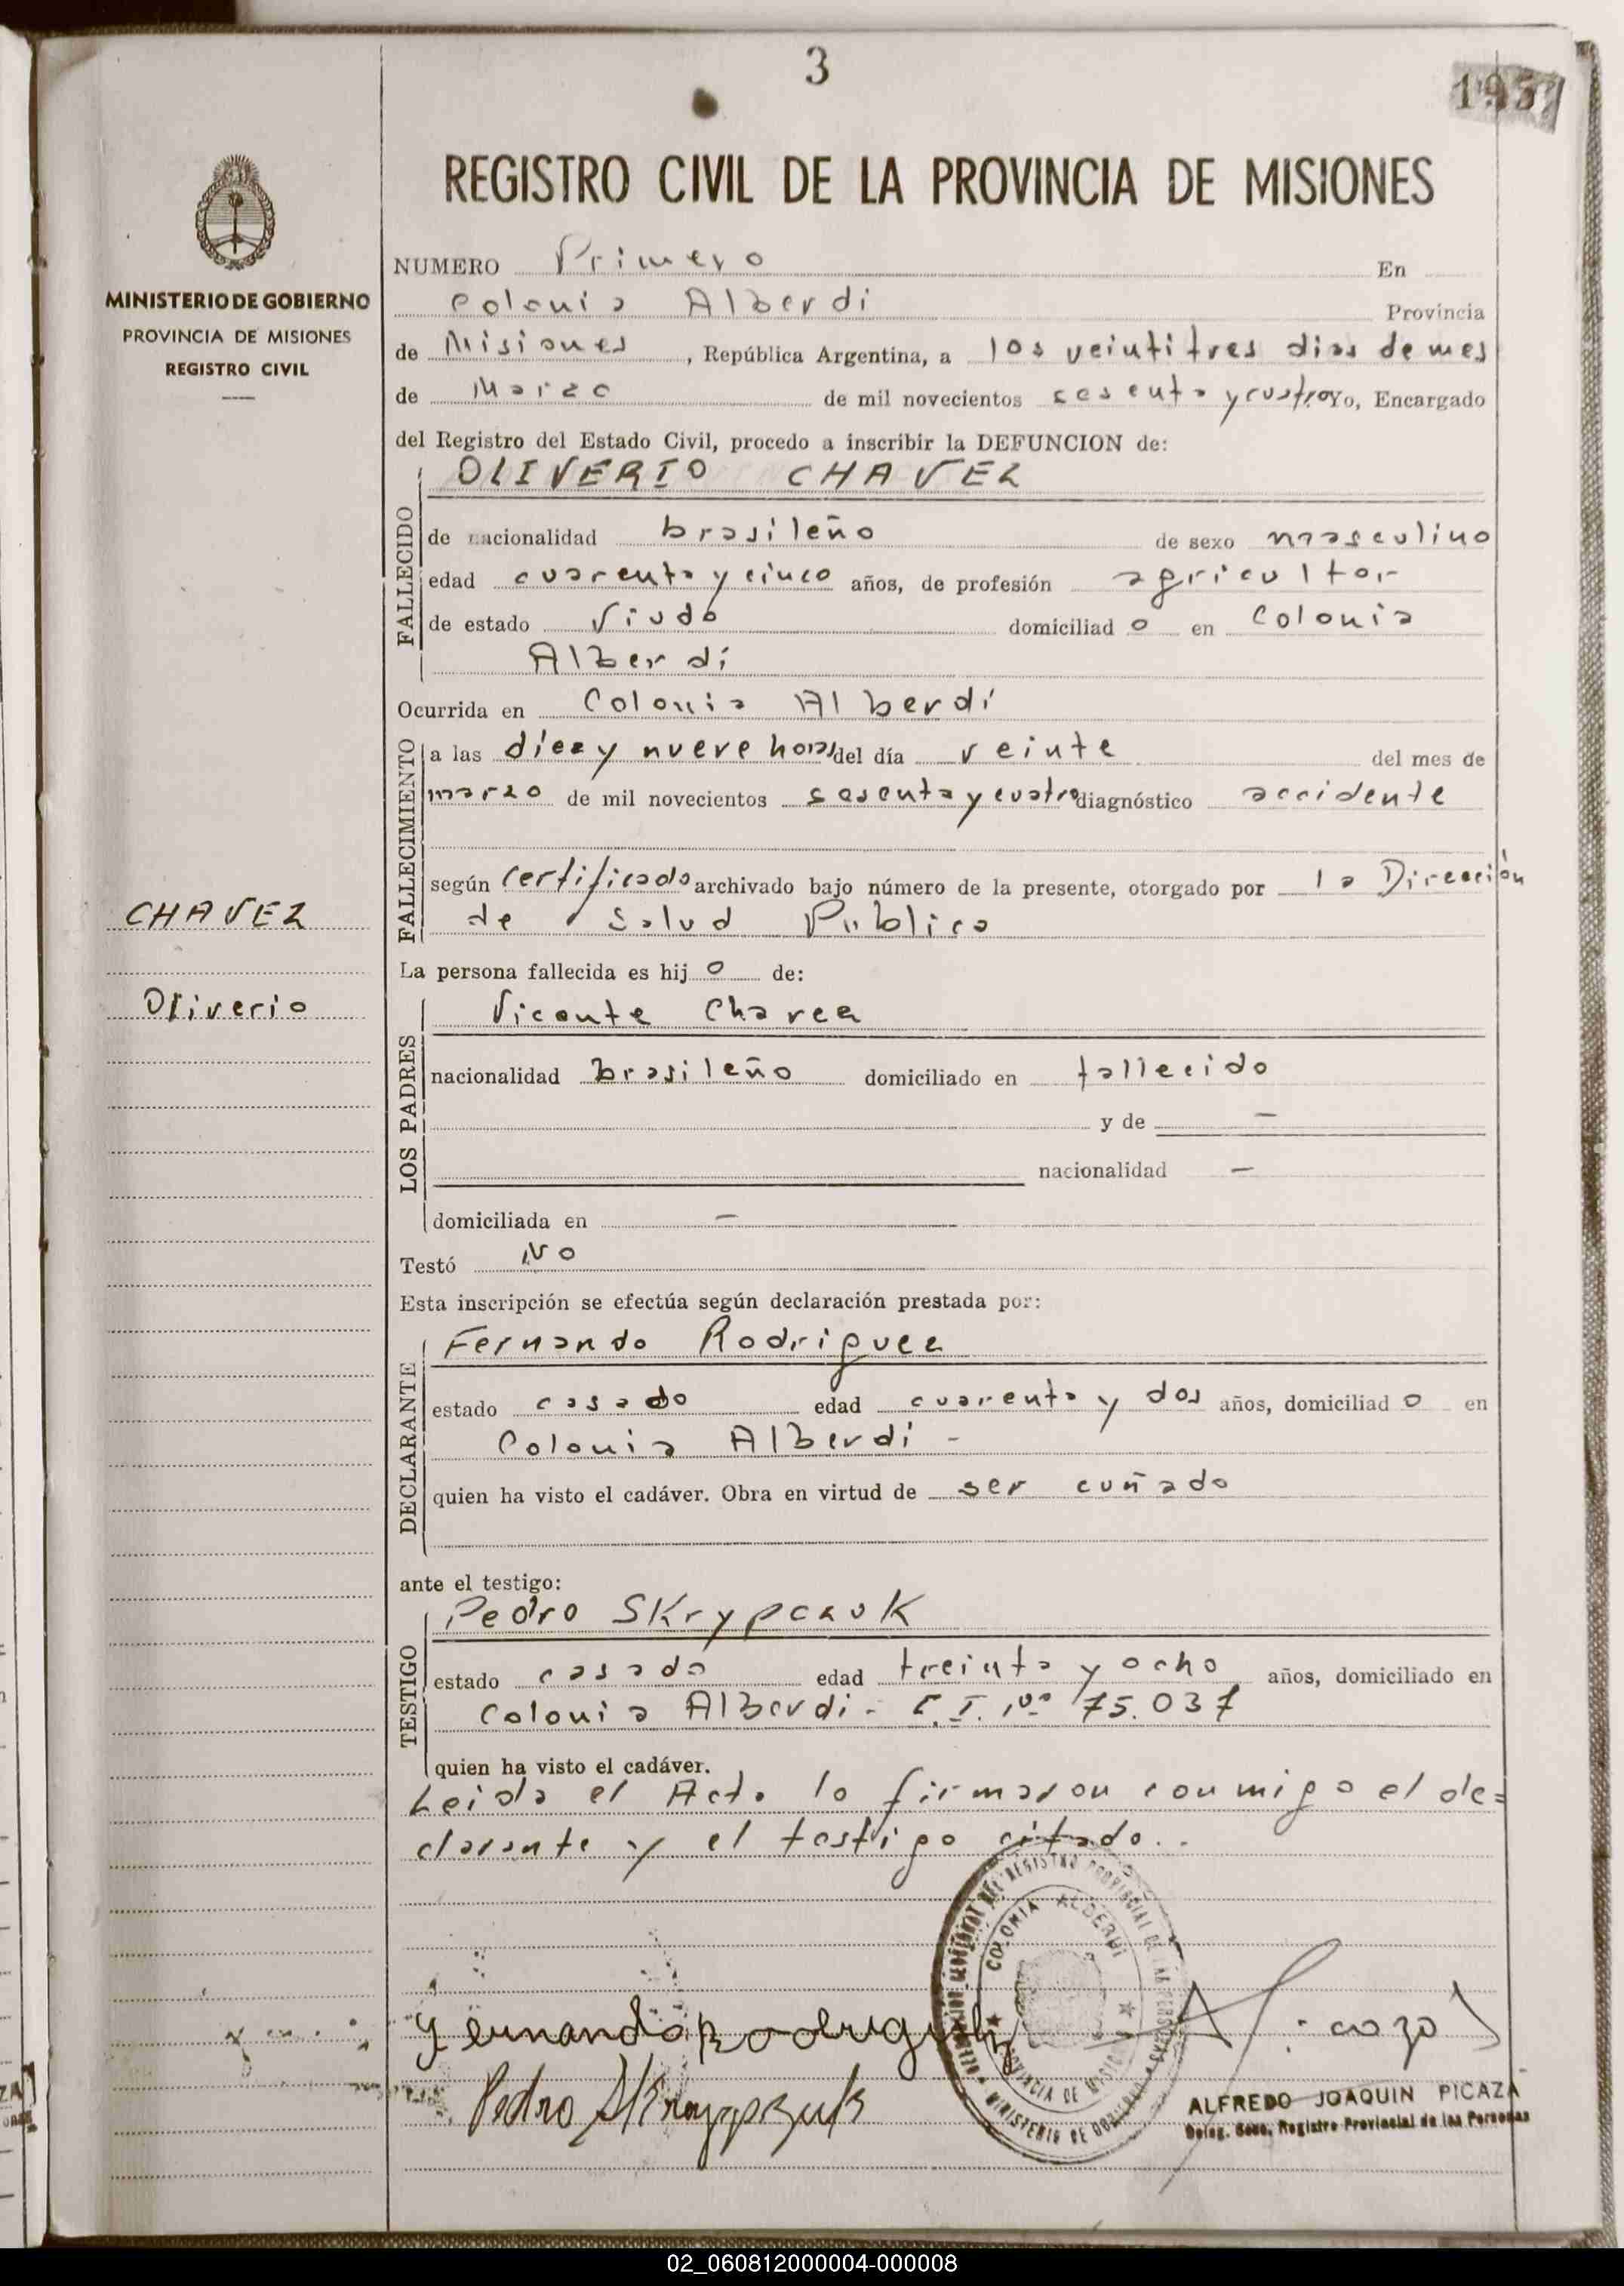 3
195
REGISTRO CIVIL DE LA PROVINCIA DE MISIONES
MINISTERIO DE GOBIERNO
PROVINCIA DE MISIONES
REGISTRO CIVIL
NUMERO Primero En
Colonia Alberdi Provincia
de Misiones, República Argentina, a los veintitres dias de mes
de Marzo de mil novecientos sesenta y cuatro Yo, Encargado
del Registro del Estado Civil, procedo a inscribir la DEFUNCION de:
OLIVERIO CHAVEZ
FALLECIDO
de nacionalidad brasileño de sexo masculino
edad cuarenta y cinco años, de profesión agricultor
de estado Viudo domiciliad o en Colonia
Alberdi
Ocurrida en Colonia Alberdi
FALLECIMIENTO
a las diez y nueve horas del día veinte del mes de
marzo de mil novecientos sesenta y cuatro diagnóstico accidente
según certificado archivado bajo número de la presente, otorgado por la Dirección
de Salud Publica
CHAVEZ
Oliverio
La persona fallecida es hij o de:
LOS PADRES
Vicente Chavez
nacionalidad brasileño domiciliado en fallecido
y de —
nacionalidad —
domiciliada en —
Testó No
Esta inscripción se efectúa según declaración prestada por:
DECLARANTE
Fernando Rodriguez
estado casado edad cuarenta y dos años, domiciliad o en
Colonia Alberdi -
quien ha visto el cadáver. Obra en virtud de ser cuñado
ante el testigo:
TESTIGO
Pedro SKrypczuK
estado casado edad treinta y ocho años, domiciliado en
Colonia Alberdi - C.I. Nº 75.037
quien ha visto el cadáver.
Leida el Acta la firmaron conmigo el de=
clarante y el testigo citado..
COLONIA ALBERDI
PROVINCIA DE MISIONES
MINISTERIO DE GOBIERNO
Fernando Rodriguez
Pedro Skrypczuk
A Picaza
ALFREDO JOAQUIN PICAZA
Deleg. Secc. Registro Provincial de las Personas
02_060812000004-000008